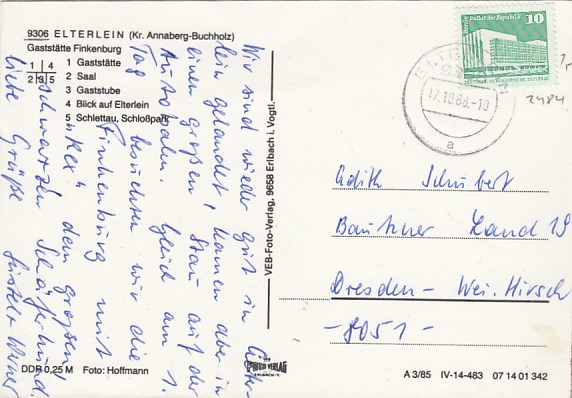 9306 ELTERLEIN (Kr. Annaberg-Buchholz)
Gaststätte Finkenburg
1 4
2 3 5
1 Gaststätte
2 Saal
3 Gaststube
4 Blick auf Elterlein
5 Schlettau, Schloßpark
Wir sind wieder gut in Elter-
lein gelandet, kamen aber in
einen großen Stau auf der
Autobahn. Gleich am 1.
Tag besuchten wir die
Finkenburg mit
dem großen
schwarzen Schäferhund.
Liebe Grüße
Werner
VEB-Foto-Verlag, 9658 Erlbach i. Vogtl.
Palast der Republik
10
12.10.88.-10
a
2484
Edith Schubert
Bautzner Land 19
Dresden - Wei. Hirsch
- 8051 -
DDR 0,25 M Foto: Hoffmann
VERLAG
A 3/85 IV-14-483 07 14 01 342